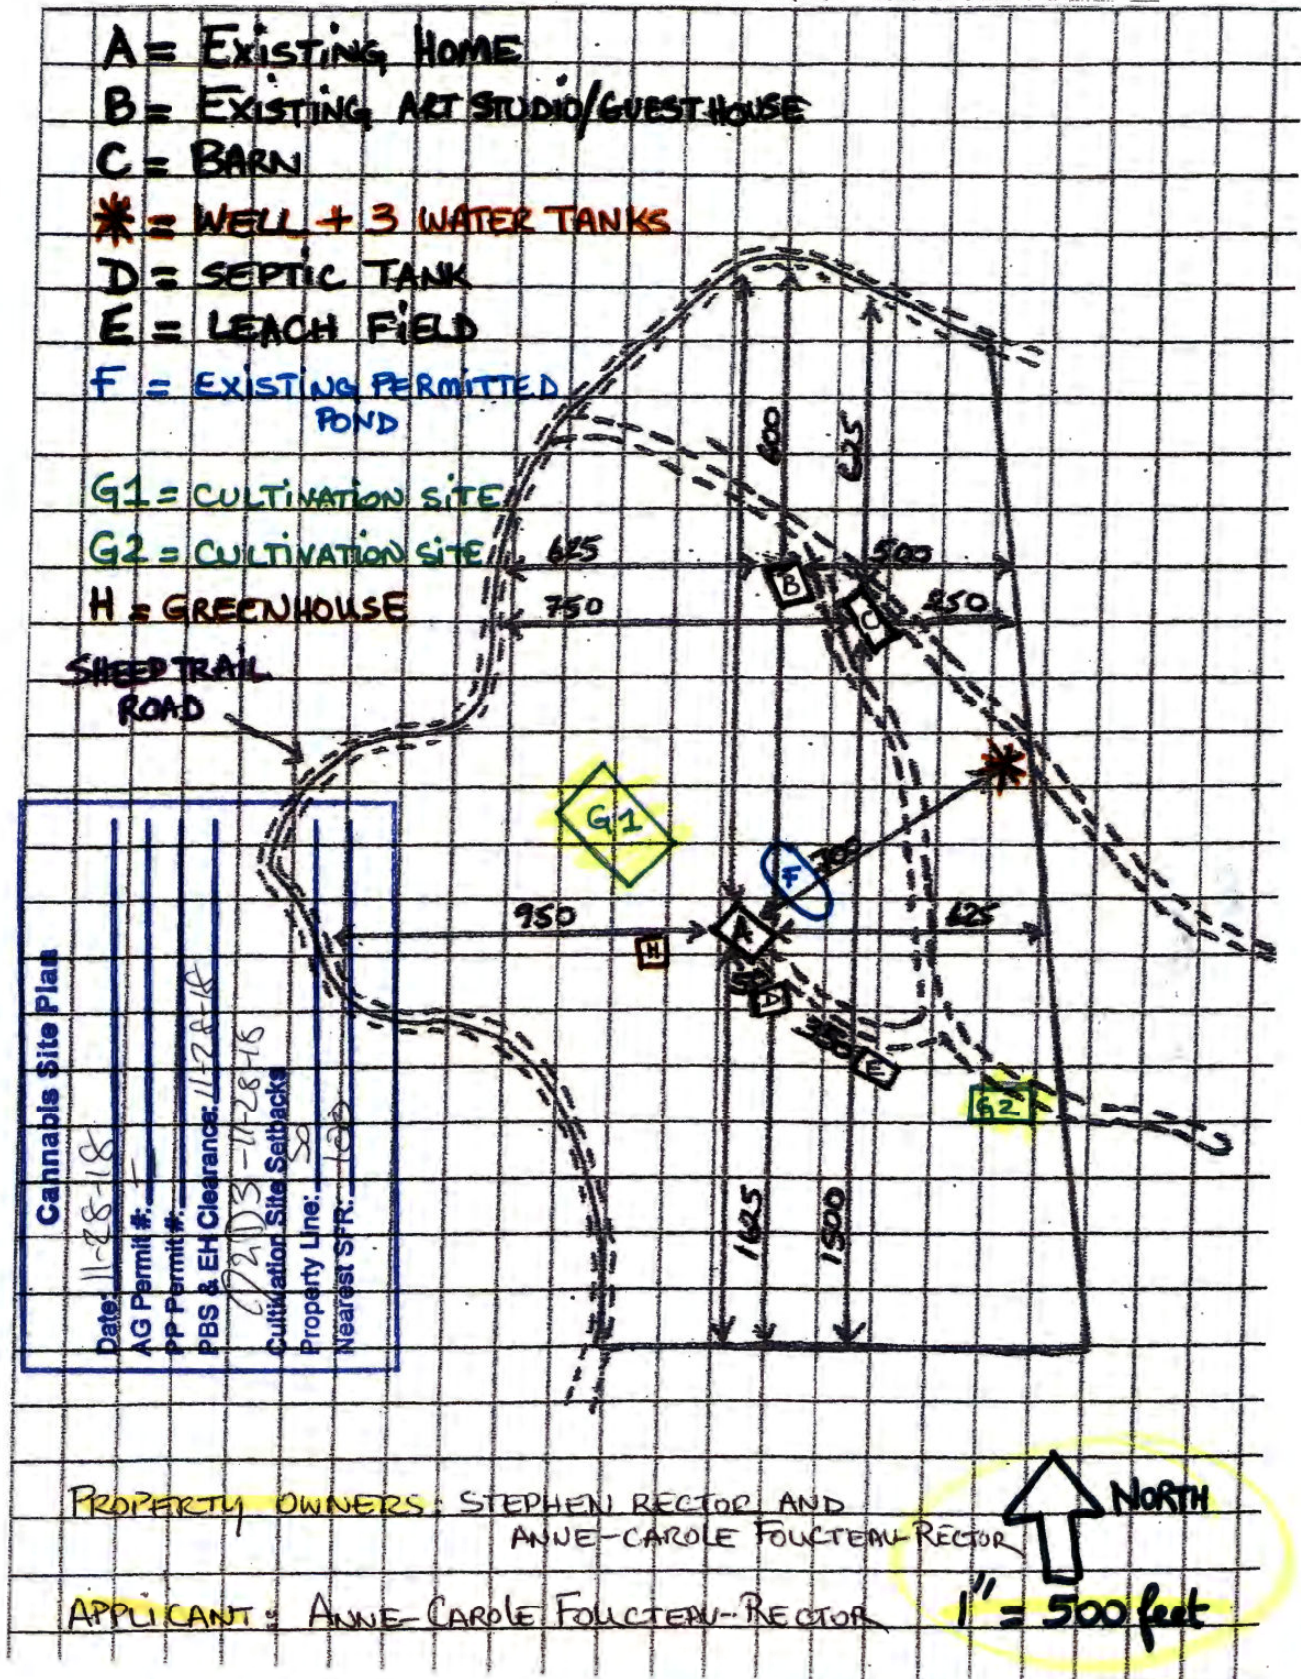 A = EXISTING HOME
B = EXISTING ART STUDIO/GUEST HOUSE
C = BARN
* = WELL + 3 WATER TANKS
D = SEPTIC TANK
E = LEACH FIELD
F = EXISTING PERMITTED
POND
G1 = CULTIVATION SITE
G2 = CULTIVATION SITE
H = GREENHOUSE
SHEEP TRAIL
ROAD
600
625
625
500
B
750
C
250
G1
F
700
950
A
625
H
50
D
350
E
G2
1625
1500
Cannabis Site Plan
Date: 11-28-18
AG Permit#:
PP Permit#:
PBS & EH Clearance: 11-28-18
11-28-18
Cultivation Site Setbacks
Property Line: 50
Nearest SFR: 100
PROPERTY OWNERS: STEPHEN RECTOR AND
ANNE-CAROLE FOUCTEAU-RECTOR
APPLICANT: ANNE-CAROLE FOUCTEAU-RECTOR
NORTH
1" = 500 feet